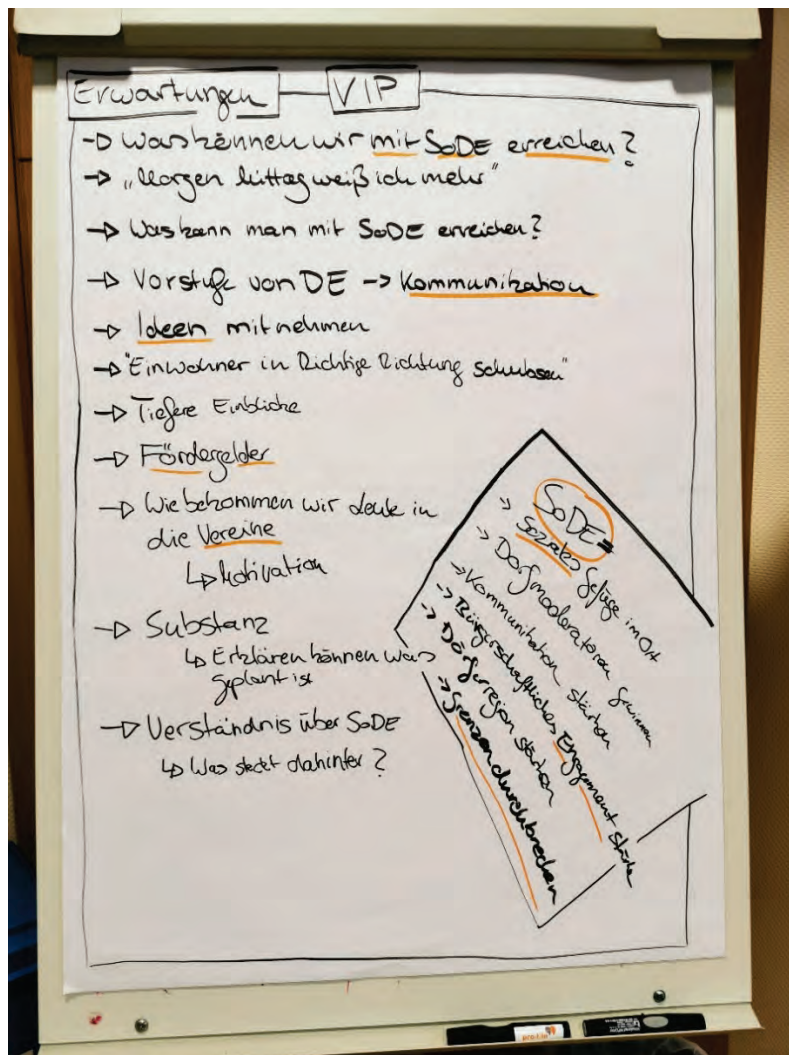 Erwartungen VIP
→ Was können wir mit SoDE erreichen?
→ „Morgen Mittag weiß ich mehr"
→ Was kann man mit SoDE erreichen?
→ Vorstufe von DE → Kommunikation
→ Ideen mitnehmen
→ "Einwohner in Richtige Richtung schubsen"
→ Tiefere Einblicke
→ Fördergelder
→ Wie bekommen wir Leute in
die Vereine
↳ Motivation
→ Substanz
↳ Erklären können was
geplant ist
→ Verständnis über SoDE
↳ Was steckt dahinter?
SoDE =
→ Soziales Gefüge im Ort
→ Dorfmoderatoren gewinnen
→ Kommunikation stärken
→ Bürgerschaftliches Engagement stärken
→ Dörferregion stärken
→ Grenzen durchbrechen